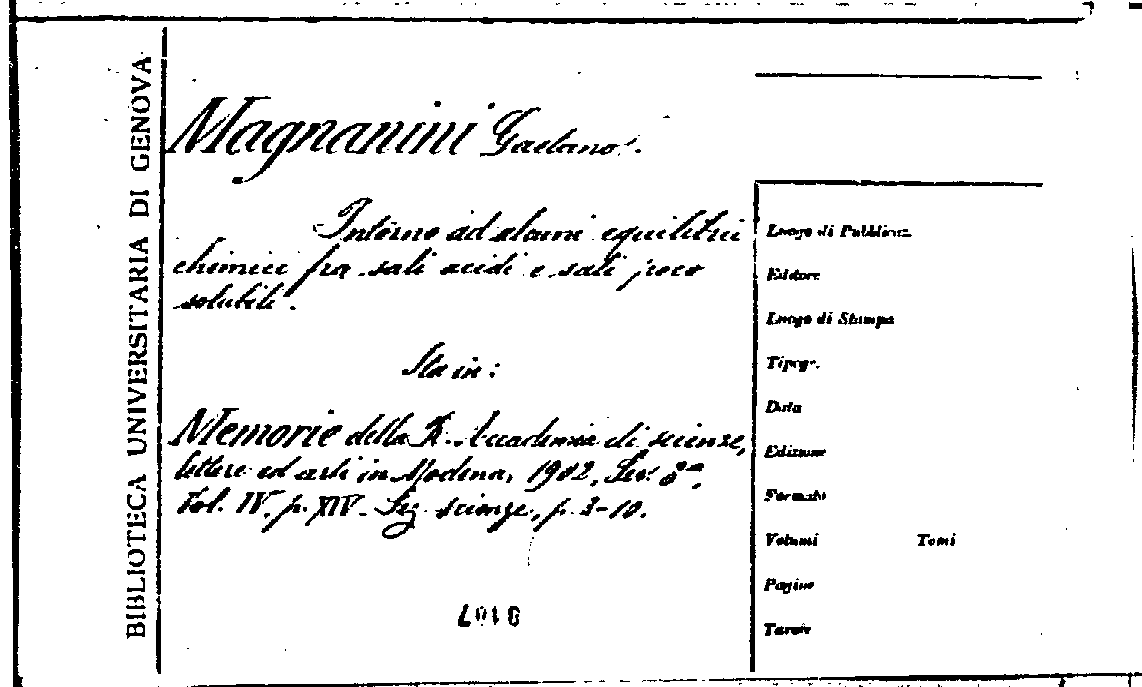 BIBLIOTECA UNIVERSITARIA DI GENOVA
Magnanini Gaetano.
Intorno ad alcuni equilibri
chimici fra sali acidi e sali poco
solubili.
Sta in:
Memorie della R. Accademia di scienze,
lettere ed arti in Modena, 1902, Ser. 3ª,
Vol. IV. p. XIV. Sez. scienze, p. 3-10.
Luogo di Pubblicaz.
Editore
Luogo di Stampa
Tipogr.
Data
Edizione
Formato
Volumi Tomi
Pagine
Tavole